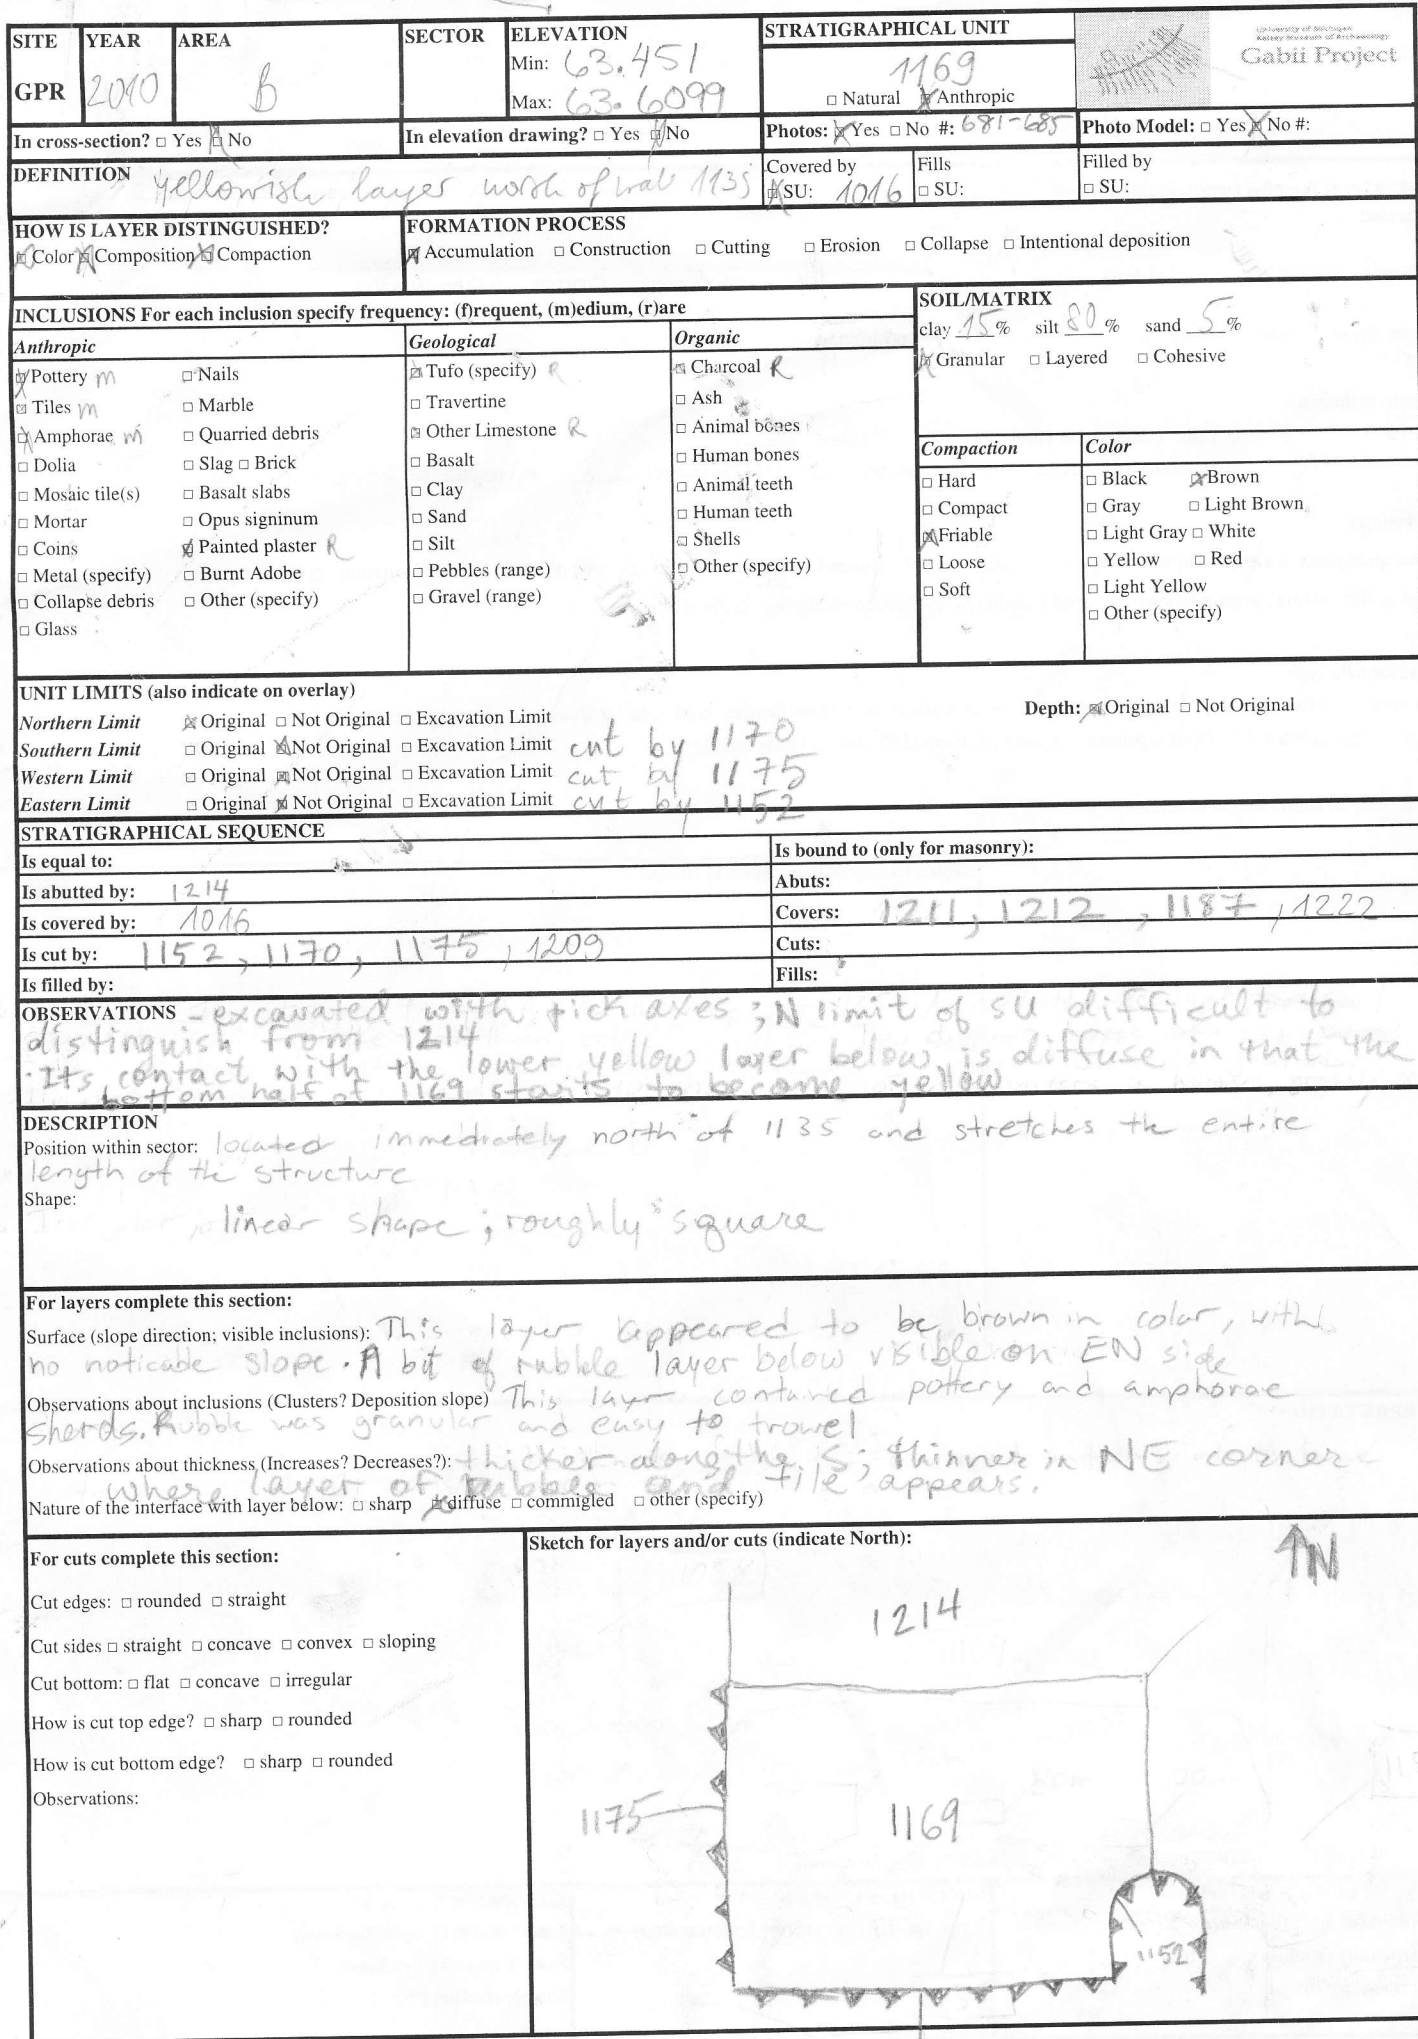 SITE YEAR AREA SECTOR ELEVATION STRATIGRAPHICAL UNIT
University of Michigan
Kelsey Museum of Archaeology
Gabii Project
GPR 2010 B
Min: 63.451
Max: 63.6099
1169
□ Natural ☒ Anthropic
In cross-section? □ Yes ☒ No
In elevation drawing? □ Yes ☒ No
Photos: ☒ Yes □ No #: 681-685
Photo Model: □ Yes ☒ No #:
DEFINITION yellowish layer north of wall 1135
Covered by
☒ SU: 1016
Fills
□ SU:
Filled by
□ SU:
HOW IS LAYER DISTINGUISHED?
☒ Color ☒ Composition ☒ Compaction
FORMATION PROCESS
☒ Accumulation □ Construction □ Cutting □ Erosion □ Collapse □ Intentional deposition
INCLUSIONS For each inclusion specify frequency: (f)requent, (m)edium, (r)are
Anthropic
☒ Pottery m □ Nails
☒ Tiles m □ Marble
☒ Amphorae m □ Quarried debris
□ Dolia □ Slag □ Brick
□ Mosaic tile(s) □ Basalt slabs
□ Mortar □ Opus signinum
□ Coins ☒ Painted plaster R
□ Metal (specify) □ Burnt Adobe
□ Collapse debris □ Other (specify)
□ Glass
Geological
☒ Tufo (specify) R
□ Travertine
☒ Other Limestone R
□ Basalt
□ Clay
□ Sand
□ Silt
□ Pebbles (range)
□ Gravel (range)
Organic
☒ Charcoal R
□ Ash
□ Animal bones
□ Human bones
□ Animal teeth
□ Human teeth
□ Shells
□ Other (specify)
SOIL/MATRIX
clay 15% silt 80% sand 5%
☒ Granular □ Layered □ Cohesive
Compaction
□ Hard
□ Compact
☒ Friable
□ Loose
□ Soft
Color
□ Black ☒ Brown
□ Gray □ Light Brown
□ Light Gray □ White
□ Yellow □ Red
□ Light Yellow
□ Other (specify)
UNIT LIMITS (also indicate on overlay)
Depth: ☒ Original □ Not Original
Northern Limit ☒ Original □ Not Original □ Excavation Limit
Southern Limit □ Original ☒ Not Original □ Excavation Limit cut by 1170
Western Limit □ Original ☒ Not Original □ Excavation Limit cut by 1175
Eastern Limit □ Original ☒ Not Original □ Excavation Limit cut by 1152
STRATIGRAPHICAL SEQUENCE
Is equal to:
Is bound to (only for masonry):
Is abutted by: 1214
Abuts:
Is covered by: 1016
Covers: 1211, 1212, 1187, 1222
Is cut by: 1152, 1170, 1175, 1209
Cuts:
Is filled by:
Fills:
OBSERVATIONS - excavated with pick axes; N limit of SU difficult to
distinguish from 1214
· Its contact with the lower yellow layer below is diffuse in that the
bottom half of 1169 starts to become yellow
DESCRIPTION
Position within sector: located immediately north of 1135 and stretches the entire
length of the structure
Shape:
linear shape; roughly square
For layers complete this section:
Surface (slope direction; visible inclusions): This layer appeared to be brown in color, with
no noticable slope. A bit of rubble layer below visible on EN side
Observations about inclusions (Clusters? Deposition slope) This layer contained pottery and amphorae
sherds. Rubble was granular and easy to trowel
Observations about thickness (Increases? Decreases?): thicker along the S; thinner in NE corner
where layer of rubble and tile appears.
Nature of the interface with layer below: □ sharp ☒ diffuse □ commigled □ other (specify)
For cuts complete this section:
Cut edges: □ rounded □ straight
Cut sides □ straight □ concave □ convex □ sloping
Cut bottom: □ flat □ concave □ irregular
How is cut top edge? □ sharp □ rounded
How is cut bottom edge? □ sharp □ rounded
Observations:
Sketch for layers and/or cuts (indicate North):
N
1214
1175
1169
1152